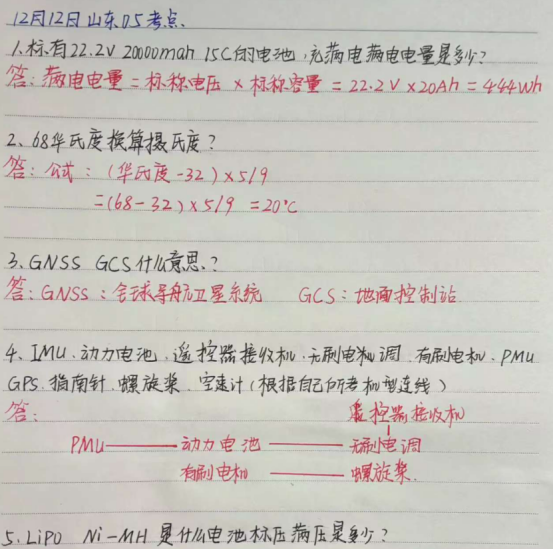 12月12日山东05考点、
1.标有22.2V 20000mah 15C的电池，充满电满电电量是多少？
答：满电电量＝标称电压×标称容量＝22.2V×20Ah＝444Wh
2、68华氏度换算摄氏度？
答：公式：（华氏度-32）×5/9
=(68-32)×5/9 =20°C
3、GNSS GCS什么意思？
答：GNSS：全球导航卫星系统 GCS：地面控制站
4、IMU、动力电池、遥控器接收机、无刷电调 有刷电机、PMU
GPS、指南针、螺旋桨、空速计（根据自己所考机型连线）
答：
遥控器接收机
PMU 动力电池 无刷电调
有刷电机 螺旋桨
5、LiPO Ni-MH 是什么电池标压满压是多少？